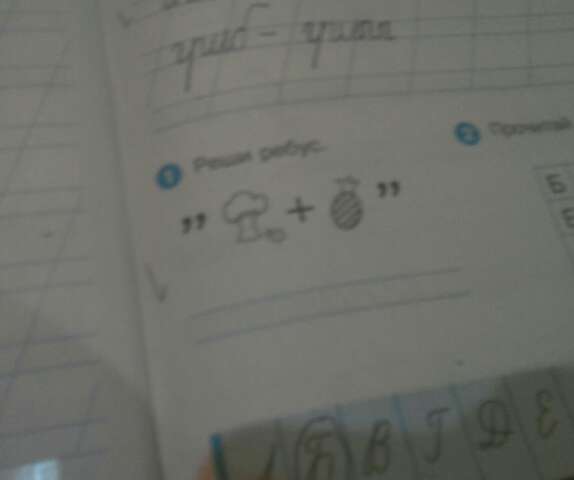 гриб - грибы
1 Реши ребус.
2 Прочитай
,, + ,,
Б
Б В Г Д Е